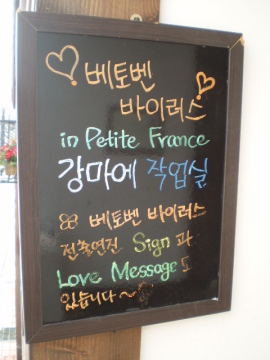 베토벤
바이러스
in Petite France
강마에 작업실
베토벤 바이러스
전출연진 Sign 과
Love Message도
있습니다~